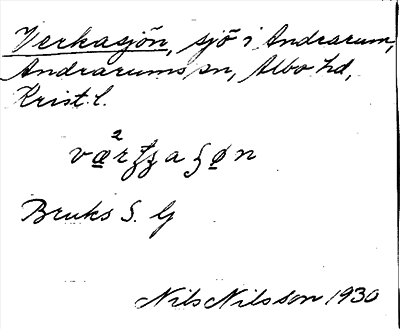 Verkasjön, sjö i Andrarum,
Andrarums sn, Albo hd,
Krist. l.
Bruks S. G
Nils Nilsson 1930